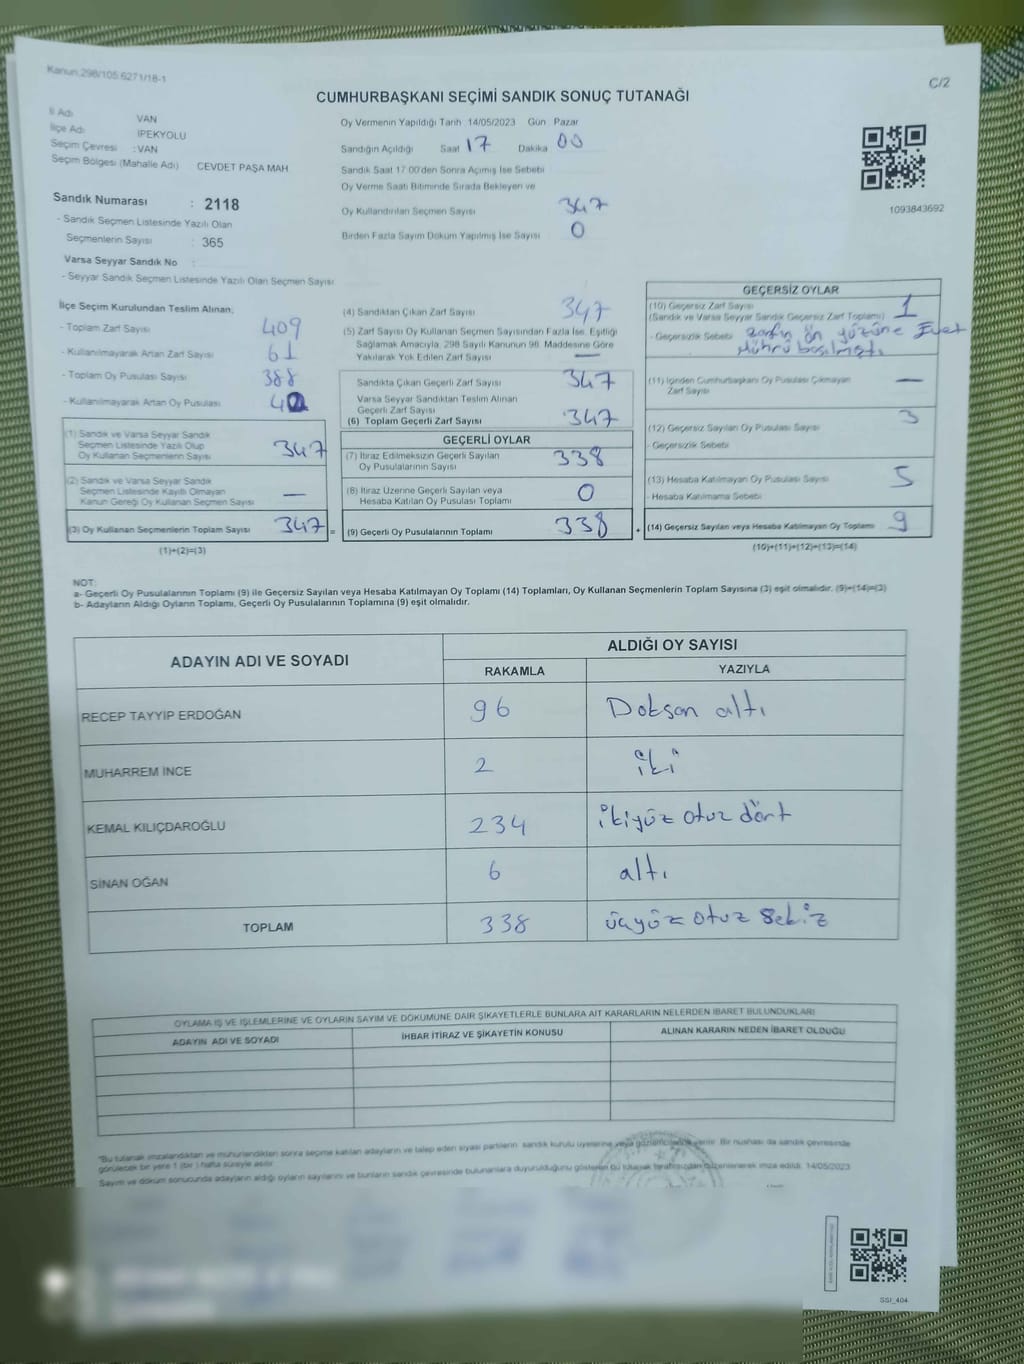 Kanun 298/105 6271/18-1
C/2
CUMHURBAŞKANI SEÇİMİ SANDIK SONUÇ TUTANAĞI
İl Adı VAN
İlçe Adı İPEKYOLU
Seçim Çevresi : VAN
Seçim Bölgesi (Mahalle Adı) CEVDET PAŞA MAH
Sandık Numarası : 2118
- Sandık Seçmen Listesinde Yazılı Olan
Seçmenlerin Sayısı : 365
Varsa Seyyar Sandık No
- Seyyar Sandık Seçmen Listesinde Yazılı Olan Seçmen Sayısı
Oy Vermenin Yapıldığı Tarih 14/05/2023 Gün Pazar
Sandığın Açıldığı Saat 17 Dakika 00
Sandık Saat 17 00'den Sonra Açımış İse Sebebi
Oy Verme Saati Bitiminde Sırada Bekleyen ve
Oy Kullandırılan Seçmen Sayısı 347
Birden Fazla Sayım Döküm Yapılmış İse Sayısı 0
1093843692
İlçe Seçim Kurulundan Teslim Alınan;
- Toplam Zarf Sayısı 409
- Kullanılmayarak Artan Zarf Sayısı 61
- Toplam Oy Pusulası Sayısı 388
- Kullanılmayarak Artan Oy Pusulası
(1) Sandık ve Varsa Seyyar Sandık
Seçmen Listesinde Yazılı Olup
Oy Kullanan Seçmenlerin Sayısı 347
(2) Sandık ve Varsa Seyyar Sandık
Seçmen Listesinde Kayıtlı Olmayan
Kanun Gereği Oy Kullanan Seçmen Sayısı —
(3) Oy Kullanan Seçmenlerin Toplam Sayısı 347 =
(1)+(2)=(3)
(4) Sandıktan Çıkan Zarf Sayısı 347
(5) Zarf Sayısı Oy Kullanan Seçmen Sayısından Fazla İse, Eşitliği
Sağlamak Amacıyla, 298 Sayılı Kanunun 98. Maddesine Göre
Yakılarak Yok Edilen Zarf Sayısı —
Sandıkta Çıkan Geçerli Zarf Sayısı 347
Varsa Seyyar Sandıktan Teslim Alınan
Geçerli Zarf Sayısı
(6) Toplam Geçerli Zarf Sayısı 347
GEÇERLİ OYLAR
(7) İtiraz Edilmeksizin Geçerli Sayılan
Oy Pusulalarının Sayısı 338
(8) İtiraz Üzerine Geçerli Sayılan veya
Hesaba Katılan Oy Pusulası Toplamı 0
(9) Geçerli Oy Pusulalarının Toplamı 338 +
GEÇERSİZ OYLAR
(10) Geçersiz Zarf Sayısı
(Sandık ve Varsa Seyyar Sandık Geçersiz Zarf Toplamı) 1
- Geçersizlik Sebebi zarfın ön yüzüne Evet
mührü basılmıştı
(11) İçinden Cumhurbaşkanı Oy Pusulası Çıkmayan
Zarf Sayısı —
(12) Geçersiz Sayılan Oy Pusulası Sayısı 3
- Geçersizlik Sebebi
(13) Hesaba Katılmayan Oy Pusulası Sayısı 5
- Hesaba Katılmama Sebebi
(14) Geçersiz Sayılan veya Hesaba Katılmayan Oy Toplamı 9
(10)+(11)+(12)+(13)=(14)
NOT:
a- Geçerli Oy Pusulalarının Toplamı (9) ile Geçersiz Sayılan veya Hesaba Katılmayan Oy Toplamı (14) Toplamları, Oy Kullanan Seçmenlerin Toplam Sayısına (3) eşit olmalıdır. (9)+(14)=(3)
b- Adayların Aldığı Oyların Toplamı, Geçerli Oy Pusulalarının Toplamına (9) eşit olmalıdır.
ADAYIN ADI VE SOYADI
ALDIĞI OY SAYISI
RAKAMLA YAZIYLA
RECEP TAYYİP ERDOĞAN 96 Doksan altı
MUHARREM İNCE 2 iki
KEMAL KILIÇDAROĞLU 234 ikiyüz otuz dört
SİNAN OĞAN 6 altı
TOPLAM 338 üçyüz otuz sekiz
OYLAMA İŞ VE İŞLEMLERİNE VE OYLARIN SAYIM VE DÖKÜMÜNE DAİR ŞİKAYETLERLE BUNLARA AİT KARARLARIN NELERDEN İBARET BULUNDUKLARI
ADAYIN ADI VE SOYADI İHBAR İTİRAZ VE ŞİKAYETİN KONUSU ALINAN KARARIN NEDEN İBARET OLDUĞU
"Bu tutanak imzalandıktan ve mühürlendikten sonra seçime katılan adayların ve talep eden siyasi partilerin sandık kurulu üyelerine veya gözlemcilerine verilir. Bir nüshası da sandık çevresinde
görülecek bir yere 1 (bir ) hafta süreyle asılır
Sayım ve döküm sonucunda adayların aldığı oyların sayılarını ve bunların sandık çevresinde bulunanlara duyurulduğunu gösteren bu tutanak tarafımızdan düzenlenerek imza edildi. 14/05/2023
SSI_404